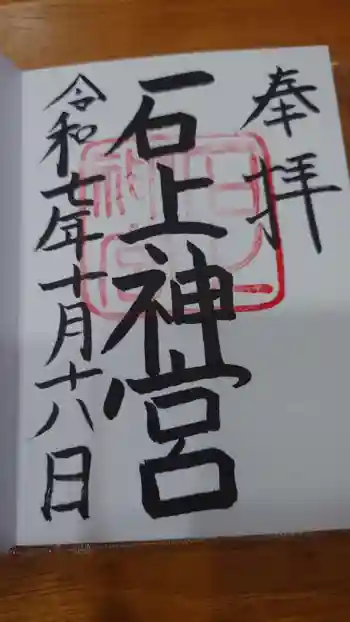 奉拝
石上神宮
令和七年十月十八日